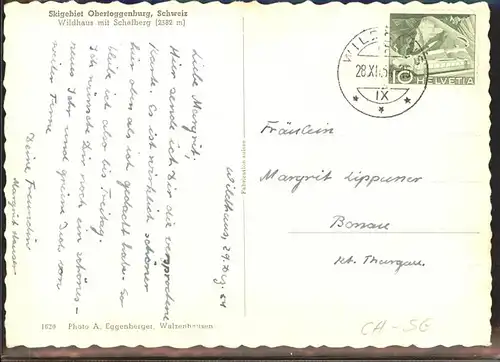 Skigebiet Obertoggenburg, Schweiz
Wildhaus mit Schafberg (2382 m)
Wildhaus, 29. Dez. 54
Liebe Margrit,
Hier sende ich Dir die versprochene
Karte. Es ist wirklich schöner
hier oben als ich gedacht habe. So
bleibe ich also bis Freitag.
Ich wünsche Dir noch ein schönes
neues Jahr und grüsse Dich von
weiter Ferne
Deine Freundin
Margrit
Fabrication suisse
WILDHAUS
28.XII.54
IX
10
HELVETIA
Fräulein
Margrit Lippuner
Bonau
Kt. Thurgau
1620 Photo A. Eggenberger, Walzenhausen
CH-SG